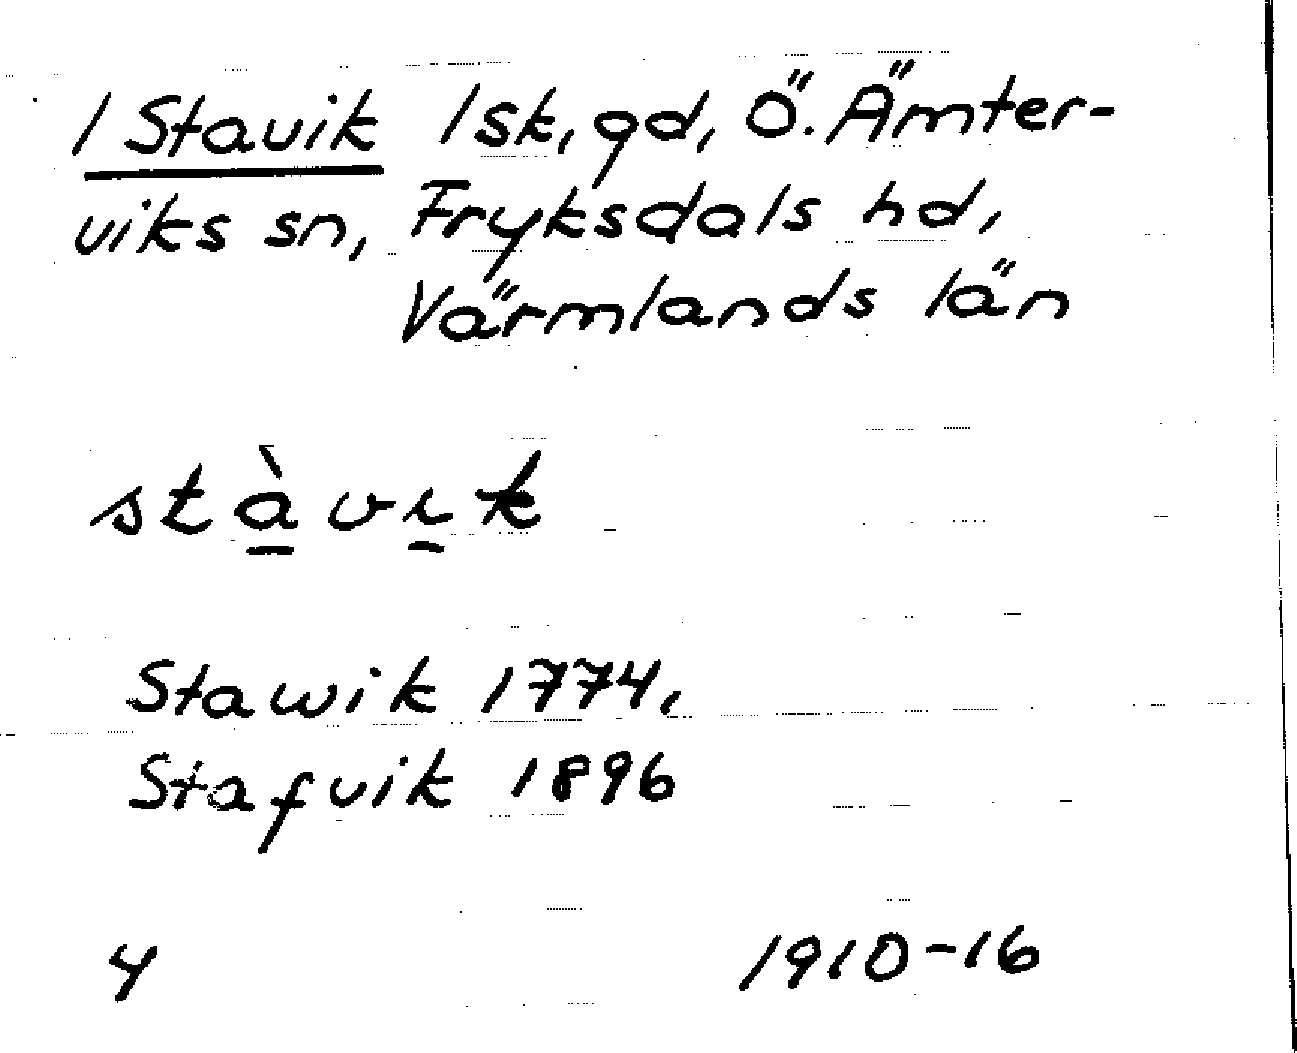 1 Stavik 1 sk, gd, Ö. Ämter-
viks sn, Fryksdals hd,
Värmlands län
stà̱vi̱k
Stawik 1774,
Stafvik 1896
4 1910-16